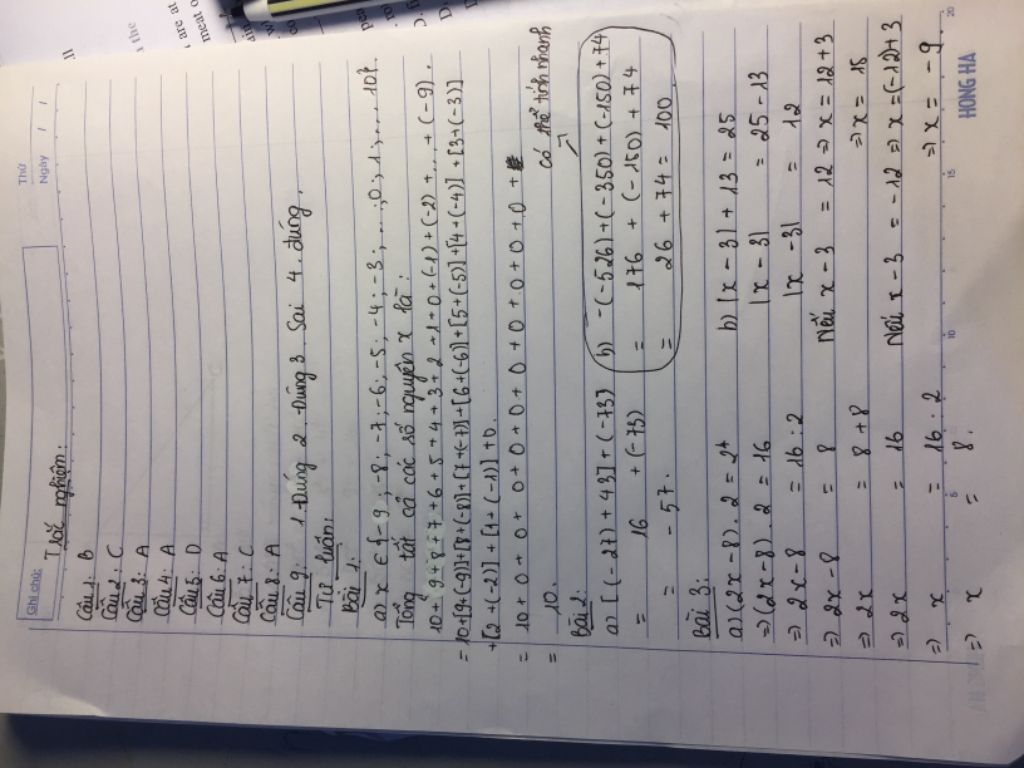 Thứ
Ngày / /
Ghi chú:
Trắc nghiệm:
Câu 1: B
Câu 2: C
Câu 3: A
Câu 4: A
Câu 5: D
Câu 6: A
Câu 7: C
Câu 8: A
Câu 9: 1. Đúng 2. Đúng 3. Sai 4. đúng.
Tự luận:
Bài 1:
a) x ∈ {-9; -8; -7; -6; -5; -4; -3; ...; 0; 1; ... 10}.
Tổng tất cả các số nguyên x là:
10+9+8+7+6+5+4+3+2+1+0+(-1)+(-2)+...+(-9).
= 10+[9+(-9)]+[8+(-8)]+[7+(-7)]+[6+(-6)]+[5+(-5)]+[4+(-4)]+[3+(-3)]
+[2+(-2)]+[1+(-1)]+0.
= 10+0+0+0+0+0+0+0+0+0+0+
= 10.
có thể tính nhanh
Bài 2:
a) [(-27)+43]+(-73)
= 16 + (-73)
= -57.
b) -(-526)+(-350)+(-150)+74
= 176 + (-150) + 74
= 26 + 74 = 100
Bài 3:
a) (2x-8).2 = 2⁴
=> (2x-8).2 = 16
=> 2x-8 = 16:2
=> 2x-8 = 8
=> 2x = 8+8
=> 2x = 16
=> x = 16:2
=> x = 8.
b) |x-3|+13 = 25
|x-3| = 25-13
|x-3| = 12
Nếu x-3 = 12 => x = 12+3
=> x = 15
Nếu x-3 = -12 => x = (-12)+3
=> x = -9
5 10 15 20
HONG HA